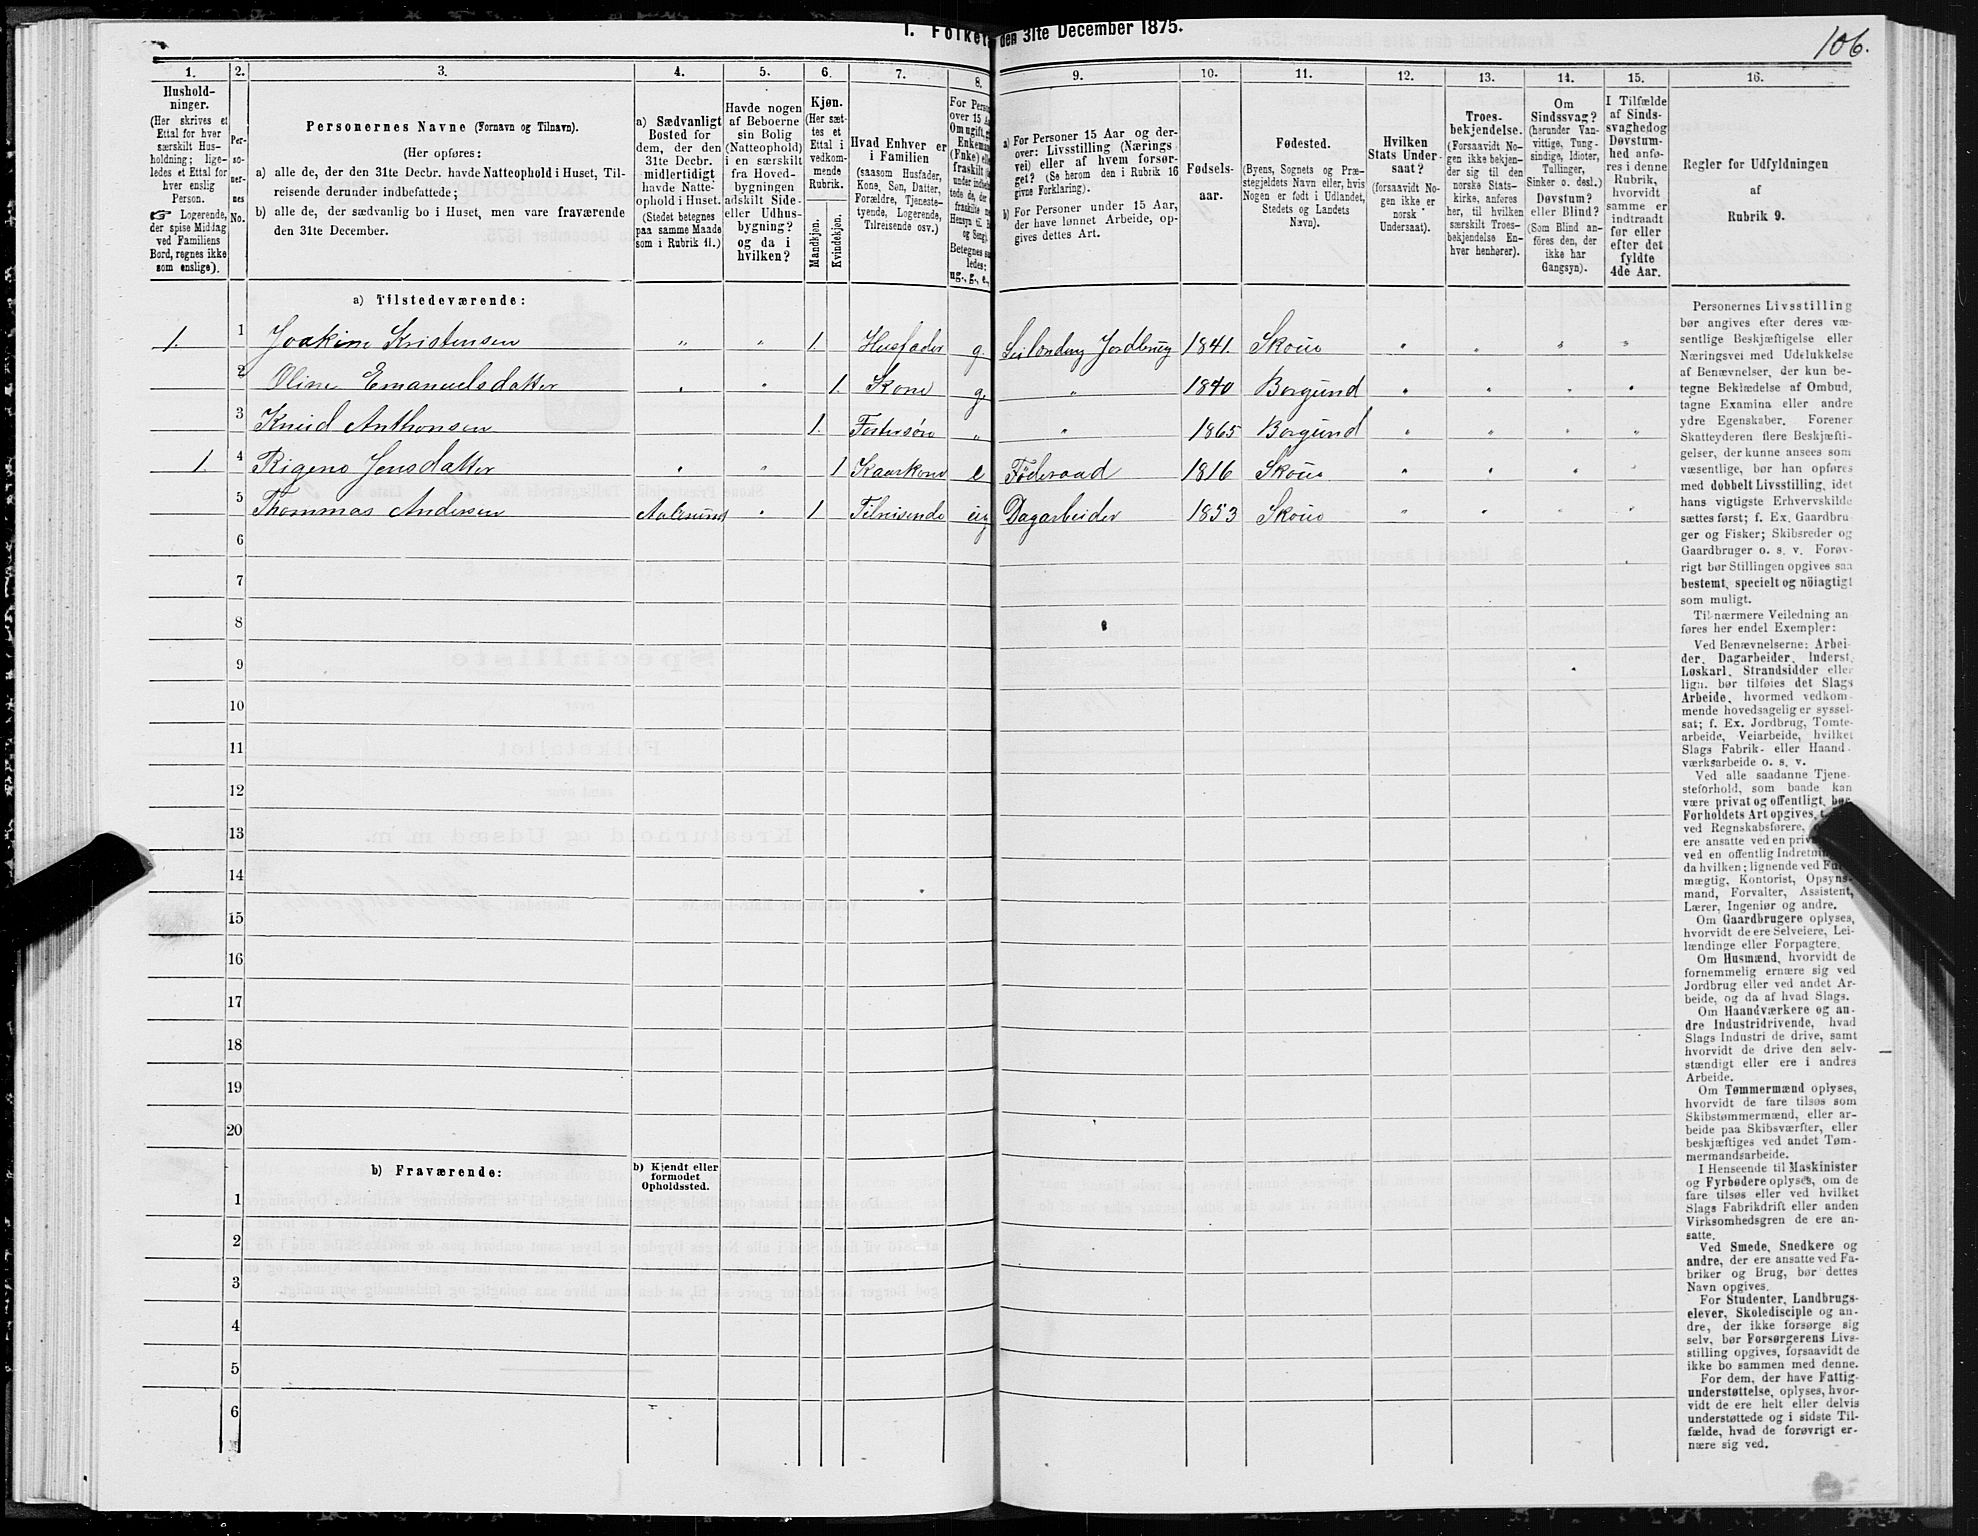 106.
I. Folket
den 31te December 1875.
1. 2. 3. 4. 5. 6. 7. 8. 9. 10. 11. 12. 13. 14. 15. 16.
Hushold-
ninger.
(Her skrives et
Ettal for hver
særskilt Hus-
holdning; lige-
ledes et Ettal for
hver enslig
Person.
☞ Logerende,
der spise Middag
ved Familiens
Bord, regnes ikke
som enslige).
Per-
so-
ner-
nes
No.
Personernes Navne (Fornavn og Tilnavn).
(Her opføres:
a) alle de, der den 31te Decbr. havde Natteophold i Huset, Til-
reisende derunder indbefattede;
b) alle de, der sædvanlig bo i Huset, men vare fraværende
den 31te December.
a) Sædvanligt
Bosted for
dem, der den
31te Decbr.
midlertidigt
havde Natte-
ophold i Huset.
(Stedet betegnes
paa samme Maade
som i Rubrik 11.)
Havde nogen
af Beboerne
sin Bolig
(Natteophold)
i en særskilt
fra Hoved-
bygningen
adskilt Side-
eller Udhus-
bygning?
og da i
hvilken?
Kjøn.
(Her sæt-
tes et
Ettal i
vedkom-
mende
Rubrik.
Mandkjøn.
Kvindekjøn.
Hvad Enhver er
i Familien
(saasom Husfader,
Kone, Søn, Datter,
Forældre, Tjeneste-
tyende, Logerende,
Tilreisende osv.)
For Perso
over 15 Aa
Om ugift, g
Enkeman
(Enke) ell
fraskilt
ug., g., e.,
a) For Personer 15 Aar og der-
over: Livsstilling (Nærings
vei) eller af hvem forsør-
get? (Se herom den i Rubrik 16
givne Forklaring).
b) For Personer under 15 Aar,
der have lønnet Arbeide, op-
gives dettes Art.
Fødsels-
aar.
Fødested.
(Byens, Sognets og Præ-
stegjeldets Navn eller, hvis
Nogen er født i Udlandet,
Stedets og Landets
Navn).
Hvilken
Stats Under-
saat?
(forsaavidt No-
gen ikke er
norsk
Undersaat).
Troes-
bekjendelse.
(Forsaavidt No-
gen ikke bekjen-
der sig til den
norske Stats-
kirke, anføres
her, til hvilken
særskilt Troes-
bekjendelse En-
hver henhører).
Om
Sindssvag?
(herunder Van-
vittige, Tung-
sindige, Idioter,
Tullinger,
Sinker o. desl.)
Døvstum?
eller Blind?
(Som Blind an-
føres den, der
ikke har
Gangsyn).
I Tilfælde
af Sinds-
svaghed og
Døvstum-
hed anfø-
res i denne
Rubrik,
hvorvidt
samme er
indtraadt
før eller
efter det
fyldte
4de Aar.
Regler for Udfyldningen
af
Rubrik 9.
a) Tilstedeværende:
1 1 Joakim Kristensen „ „ 1. Husfader g. Leilænding Jordbrug 1841. Skoue „ „ „ „
2 Oline Emanuelsdatter „ „ 1. Kone g. „ 1840 Borgund „ „ „ „
3 Knud Anthonsen 1. Fostersøn „ „ 1865 Borgund „ „ „ „
1. 4 Jensdatter „ „ 1 Kaarkone e Føderaad 1816 Skoue „ „ „ „
5 Thommas Andersen Aalesund „ 1 Tilreisende ug Dagarbeider 1853 Skoue „ „ „ „
6
7
8
9
10
11
12
13
14
15
16
17
18
19
20
b) Fraværende:
b) Kjendt eller
formodet
Opholdssted.
1
2
3
4
5
6
Personernes Livsstilling
bør angives efter deres væ-
sentlige Beskjæftigelse eller
Næringsvei med Udelukkelse
af Benævnelser, der kun be-
tegne Beklædelse af Ombud,
tagne Examina eller andre
ydre Egenskaber. Forener
Skatteyderen flere Beskjæfti-
gelser, der kunne ansees som
væsentlige, bør han opføres
med dobbelt Livsstilling, idet
hans vigtigste Erhvervskilde
sættes først; f. Ex. Gaardbru-
ger og Fisker; Skibsreder og
Gaardbruger o. s. v. Forøv-
rigt bør Stillingen opgives saa
bestemt, specielt og nöiagtigt
som muligt.
Til nærmere Veiledning an
føres her endel Exempler:
Ved Benævnelserne: Arbei-
der, Dagarbeider, Inderst,
Løskarl, Strandsidder eller
lign. bør tilføies det Slags
Arbeide, hvormed vedkom-
mende hovedsagelig er syssel-
sat; f. Ex. Jordbrug, Tomte-
arbeide, Veiarbeide, hvilket
Slags Fabrik- eller Haand-
værksarbeide o. s. v.
Ved alle saadanne Tjene-
steforhold, som baade kan
være privat og offentligt, bør
Forholdets Art opgives,
ved Regnskabsførere,
ere ansatte ved en priv
ved en offentlig Indretnin
da hvilken; lignende ved Ful
mægtig, Kontorist, Opsyns-
mand, Forvalter, Assistent,
Lærer, Ingeniør og andre.
Om Gaardbrugere oplyses,
hvorvidt de ere Selveiere, Lei-
lændinge eller Forpagtere.
Om Husmænd, hvorvidt de
fornemmelig ernære sig ved
Jordbrug eller ved andet Ar-
beide, og da af hvad Slags.
Om Haandværkere og an-
dre Industridrivende, hvad
Slags Industri de drive, samt
hvorvidt de drive den selv-
stændigt eller ere i andres
Arbeide.
Om Tømmermænd oplyses,
hvorvidt de fare tilsøs som
Skibstømmermænd, eller ar-
beide paa Skibsværfter, eller
beskjæftiges ved andet Tøm-
mermandsarbeide.
I Henseende til Maskinister
og Fyrbødere oplyses, om de
fare tilsøs eller ved hvilket
Slags Fabrikdrift eller anden
Virksomhedsgren de ere an-
satte.
Ved Smede, Snedkere og
andre, der ere ansatte ved Fa-
briker og Brug, bør dettes
Navn opgives.
For Studenter, Landbrugs-
elever, Skoledisciple og an-
dre, der ikke forsørge sig
selv, bør Forsørgerens Livs-
stilling opgives, forsaavidt de
ikke bo sammen med denne.
For dem, der have Fattig-
understøttelse, oplyses, hvor-
vidt de ere helt eller delvis
understøttede og i sidste Til-
fælde, hvad de forøvrigt er-
nære sig ved.